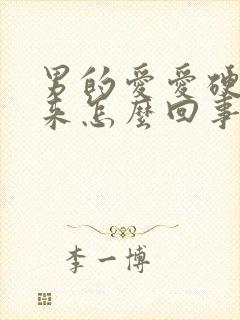 男的愛愛硬
來怎麼回事
李一博